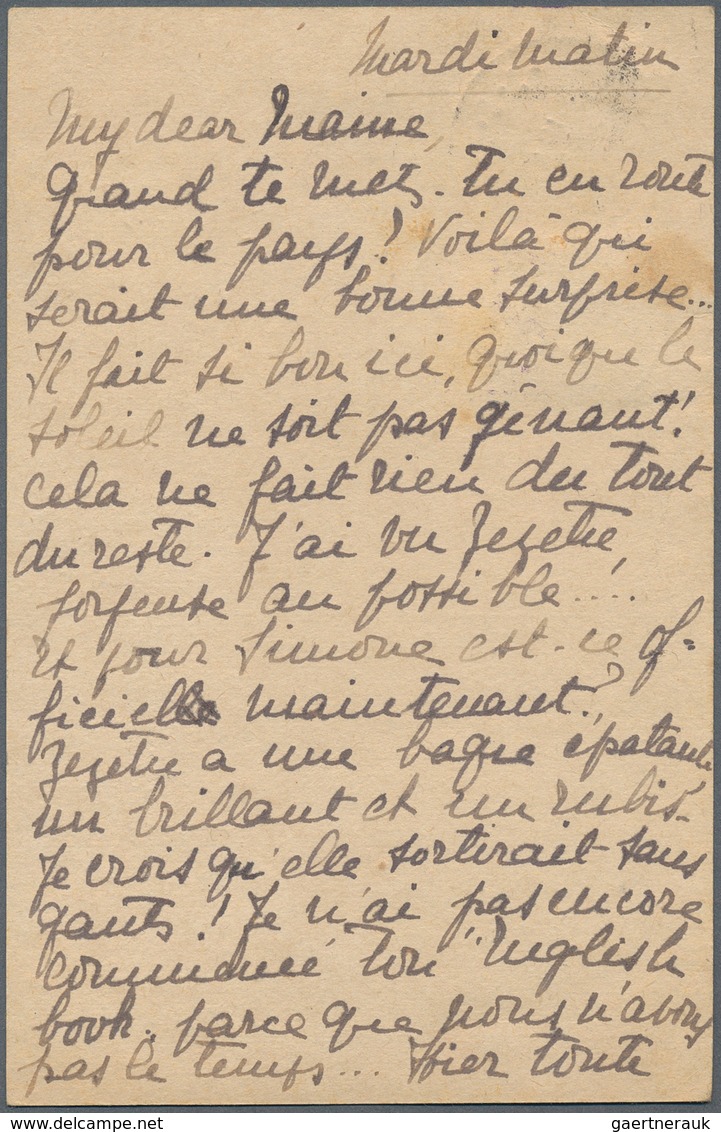 Mardi Matin
My dear Maime,
Quand te mets-tu en route
pour le pays! Voilà qui
serait une bonne surprise...
Il fait si bon ici, quoique le
soleil ne soit pas gênant!
Cela ne fait rien du tout
du reste. J'ai vu Zezette,
joyeuse au possible....!
Et pour Simone est-ce of-
ficielle maintenant?
Zezette a une bague épatante,
un brillant et un rubis.
Je crois qu'elle sortirait sans
gants! Je n'ai pas encore
commencé ton "English
book. parce que nous n'avons
pas le temps... Hier toute
gaertnerauk
delcampe.net